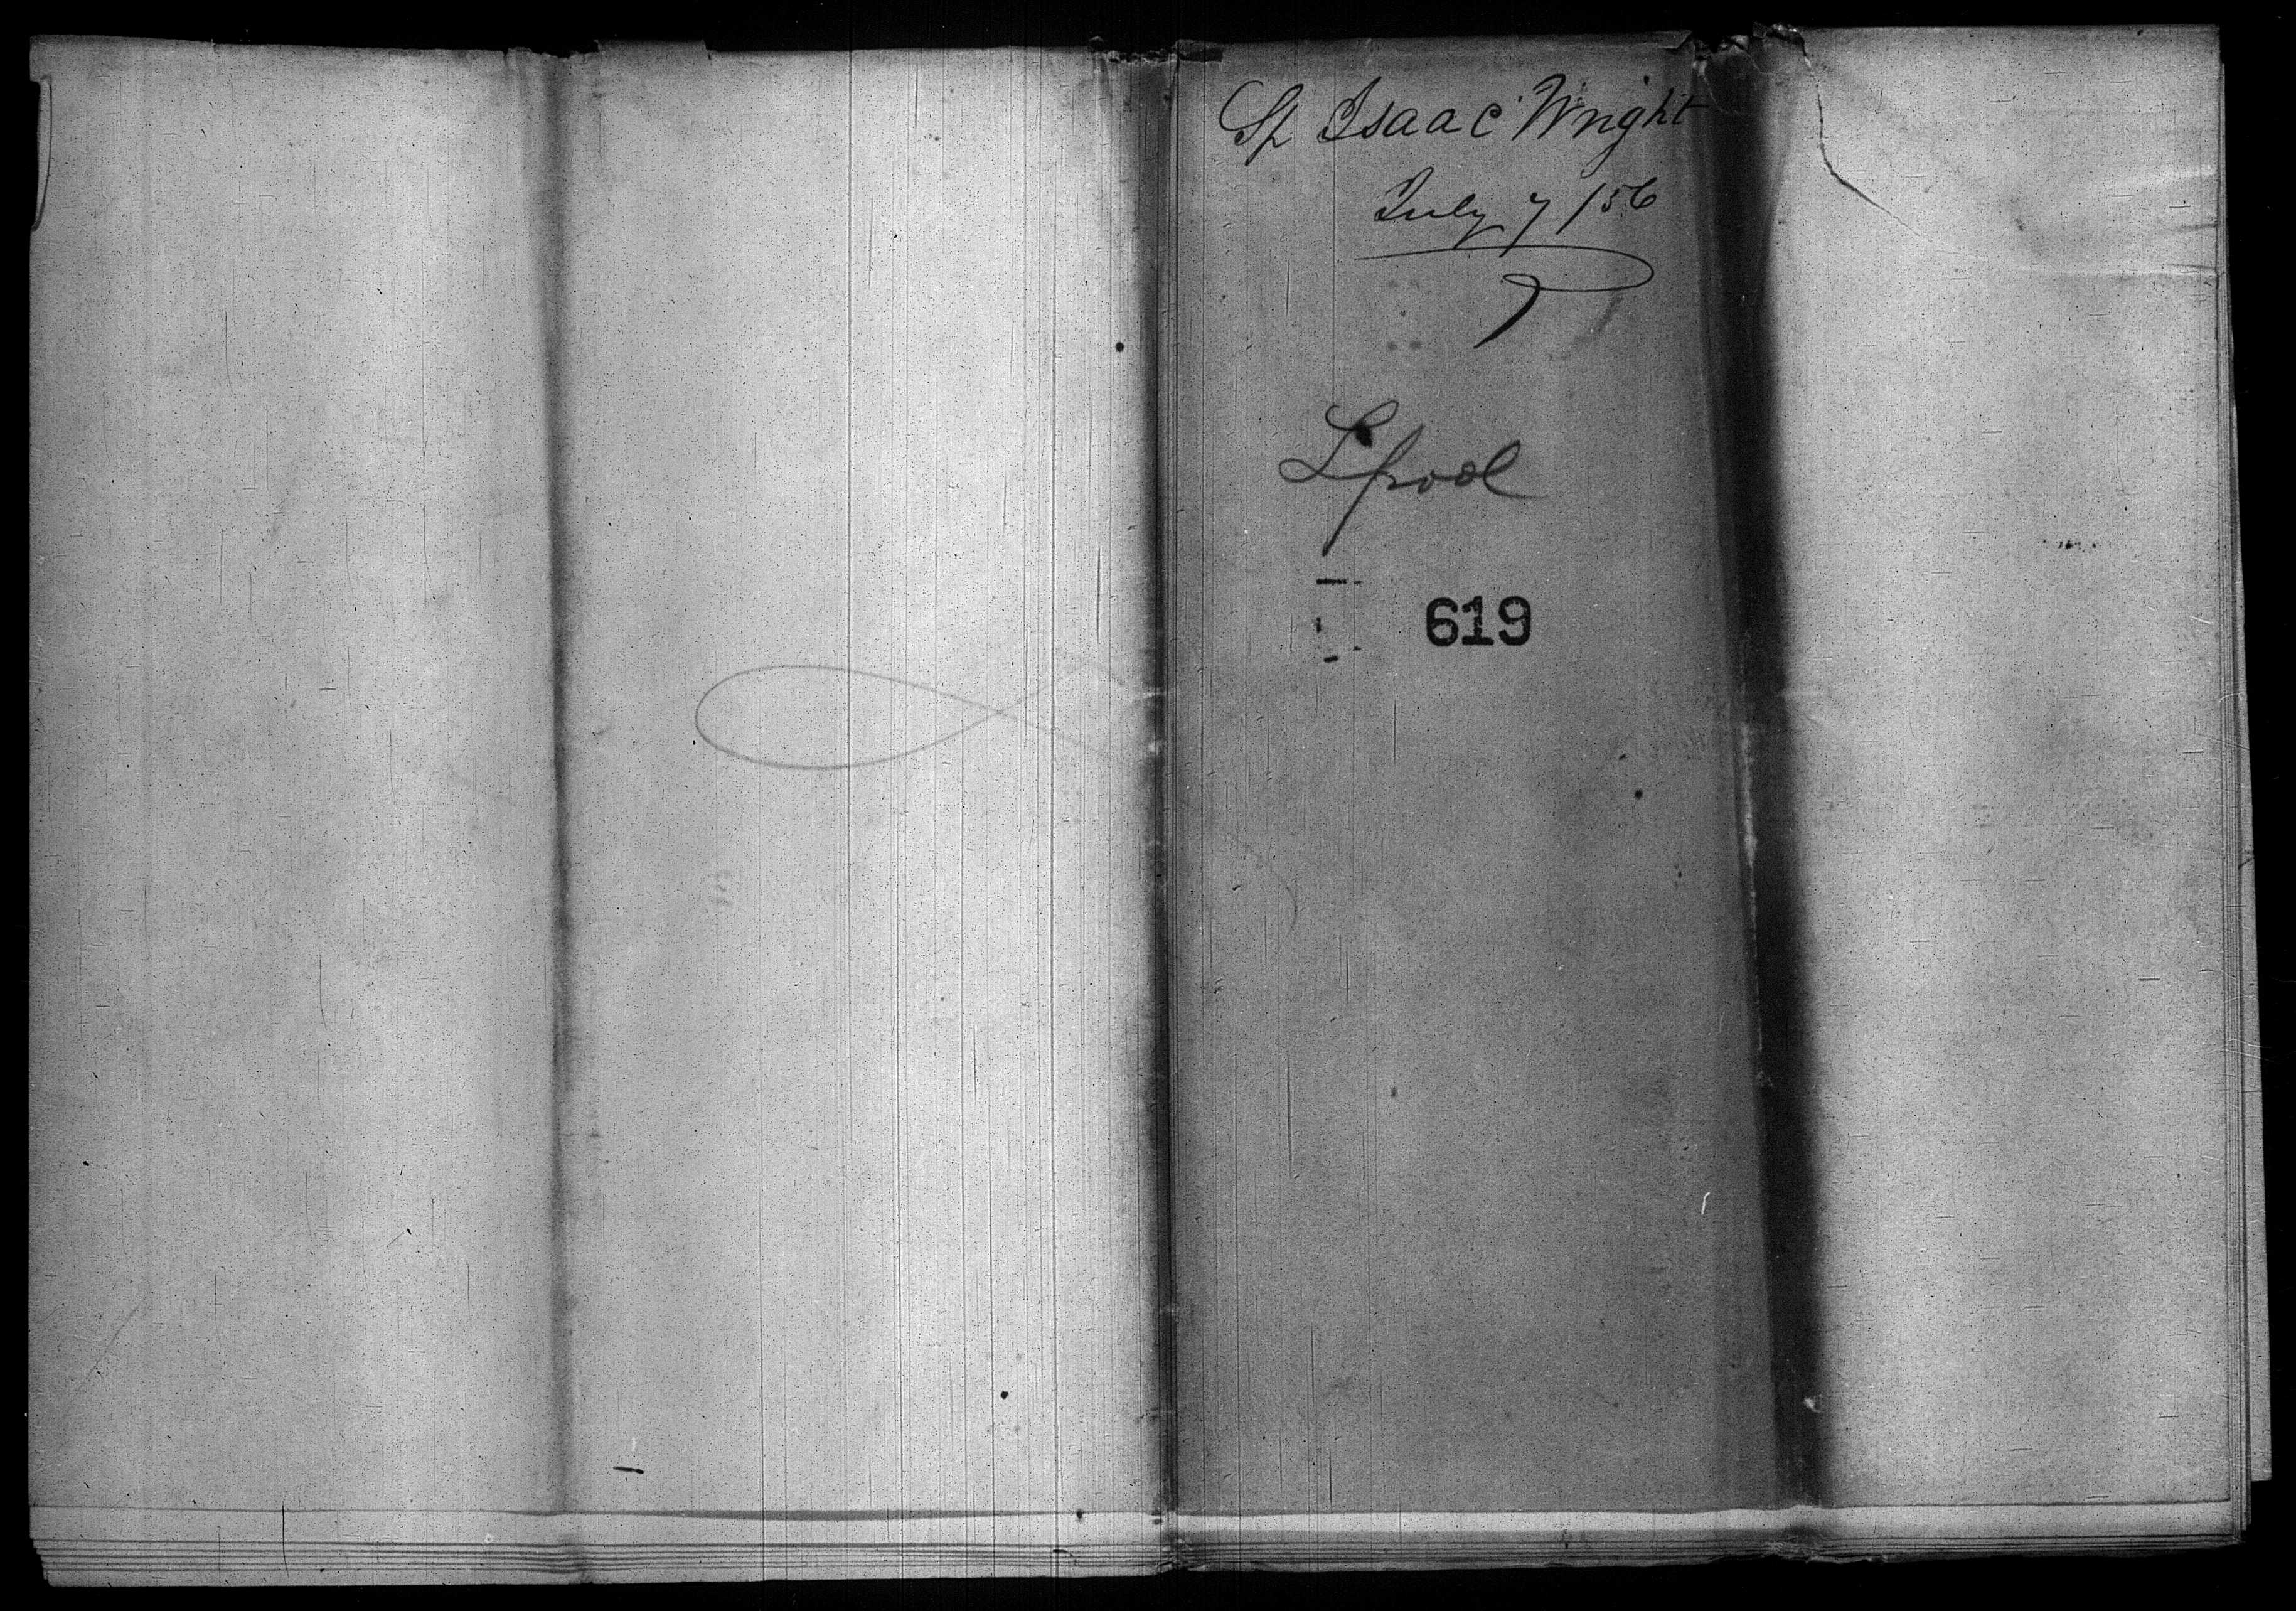 Sp Isaac Wright
July 7/56
L'pool
619